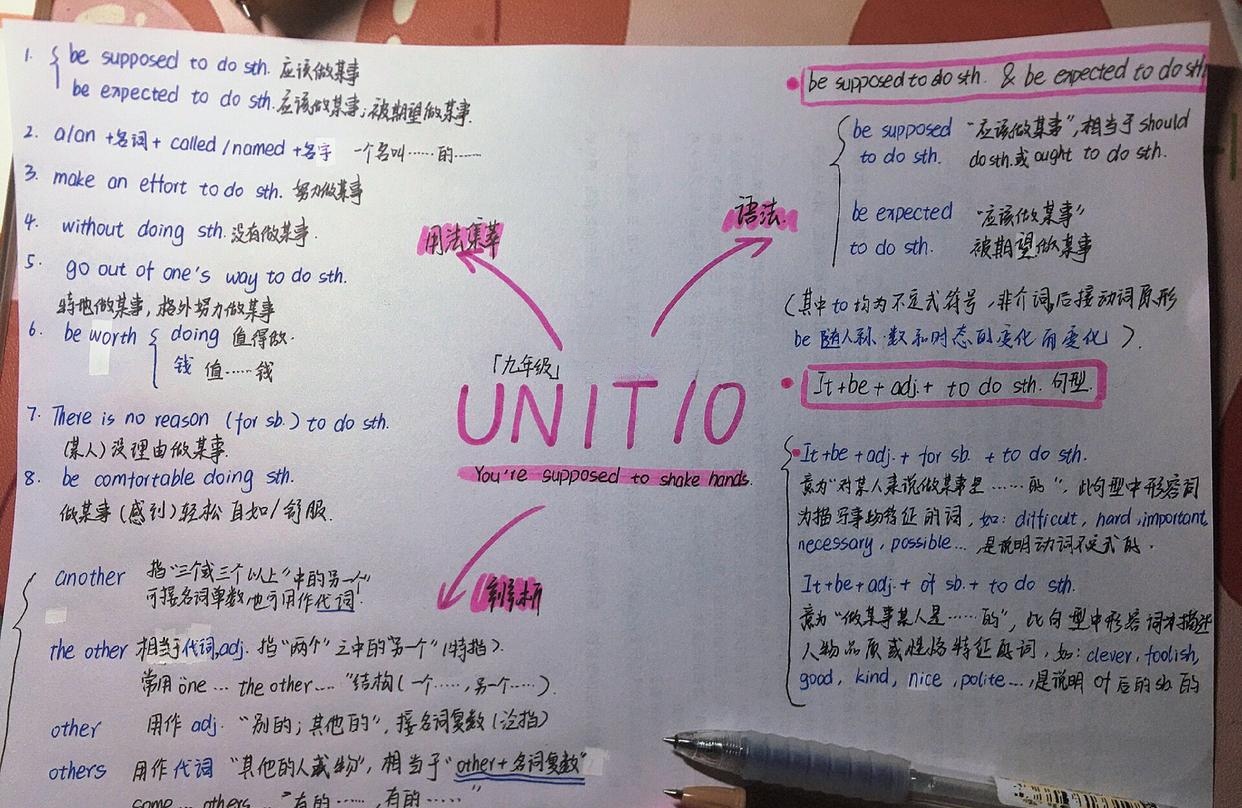 1. be supposed to do sth. 应该做某事
be expected to do sth. 应该做某事;被期望做某事.
2. a/an +名词+ called /named +名字 一个名叫……的……
3. make an effort to do sth. 努力做某事
4. without doing sth. 没有做某事.
5. go out of one's way to do sth.
特地做某事, 格外努力做某事
6. be worth doing 值得做.
钱 值……钱
7. There is no reason (for sb.) to do sth.
(某人)没理由做某事.
8. be comfortable doing sth.
做某事(感到)轻松自如/舒服.
用法集萃
语法.
「九年级」
UNIT 10
You're supposed to shake hands.
辨析
another 指"三个或三个以上"中的另一个"
可接名词单数也可用作代词.
the other 相当于代词,adj. 指"两个"之中的"另一个"(特指).
常用"one … the other …"结构(一个……,另一个……).
other 用作 adj. "别的;其他的", 接名词复数(泛指)
others 用作代词 "其他的人或物", 相当于"other+名词复数"
some … others … "有的……,有的……"
be supposed to do sth. & be expected to do sth.
be supposed "应该做某事",相当于should
to do sth. do sth.或 ought to do sth.
be expected "应该做某事"
to do sth. 被期望做某事
(其中to均为不定式符号,非介词,后接动词原形
be 随人称.数和时态的变化而变化).
It+be+adj.+ to do sth. 句型.
It+be+adj.+ for sb. + to do sth.
意为"对某人来说做某事是……的", 此句型中形容词
为描写事物特征的词, 如: difficult, hard, important,
necessary, possible…, 是说明动词不定式的.
It+be+adj.+ of sb.+ to do sth.
意为"做某事某人是……的", 此句型中形容词为描述
人物品质或性格特征的词, 如: clever, foolish,
good, kind, nice, polite…,是说明 of 后的sb.的